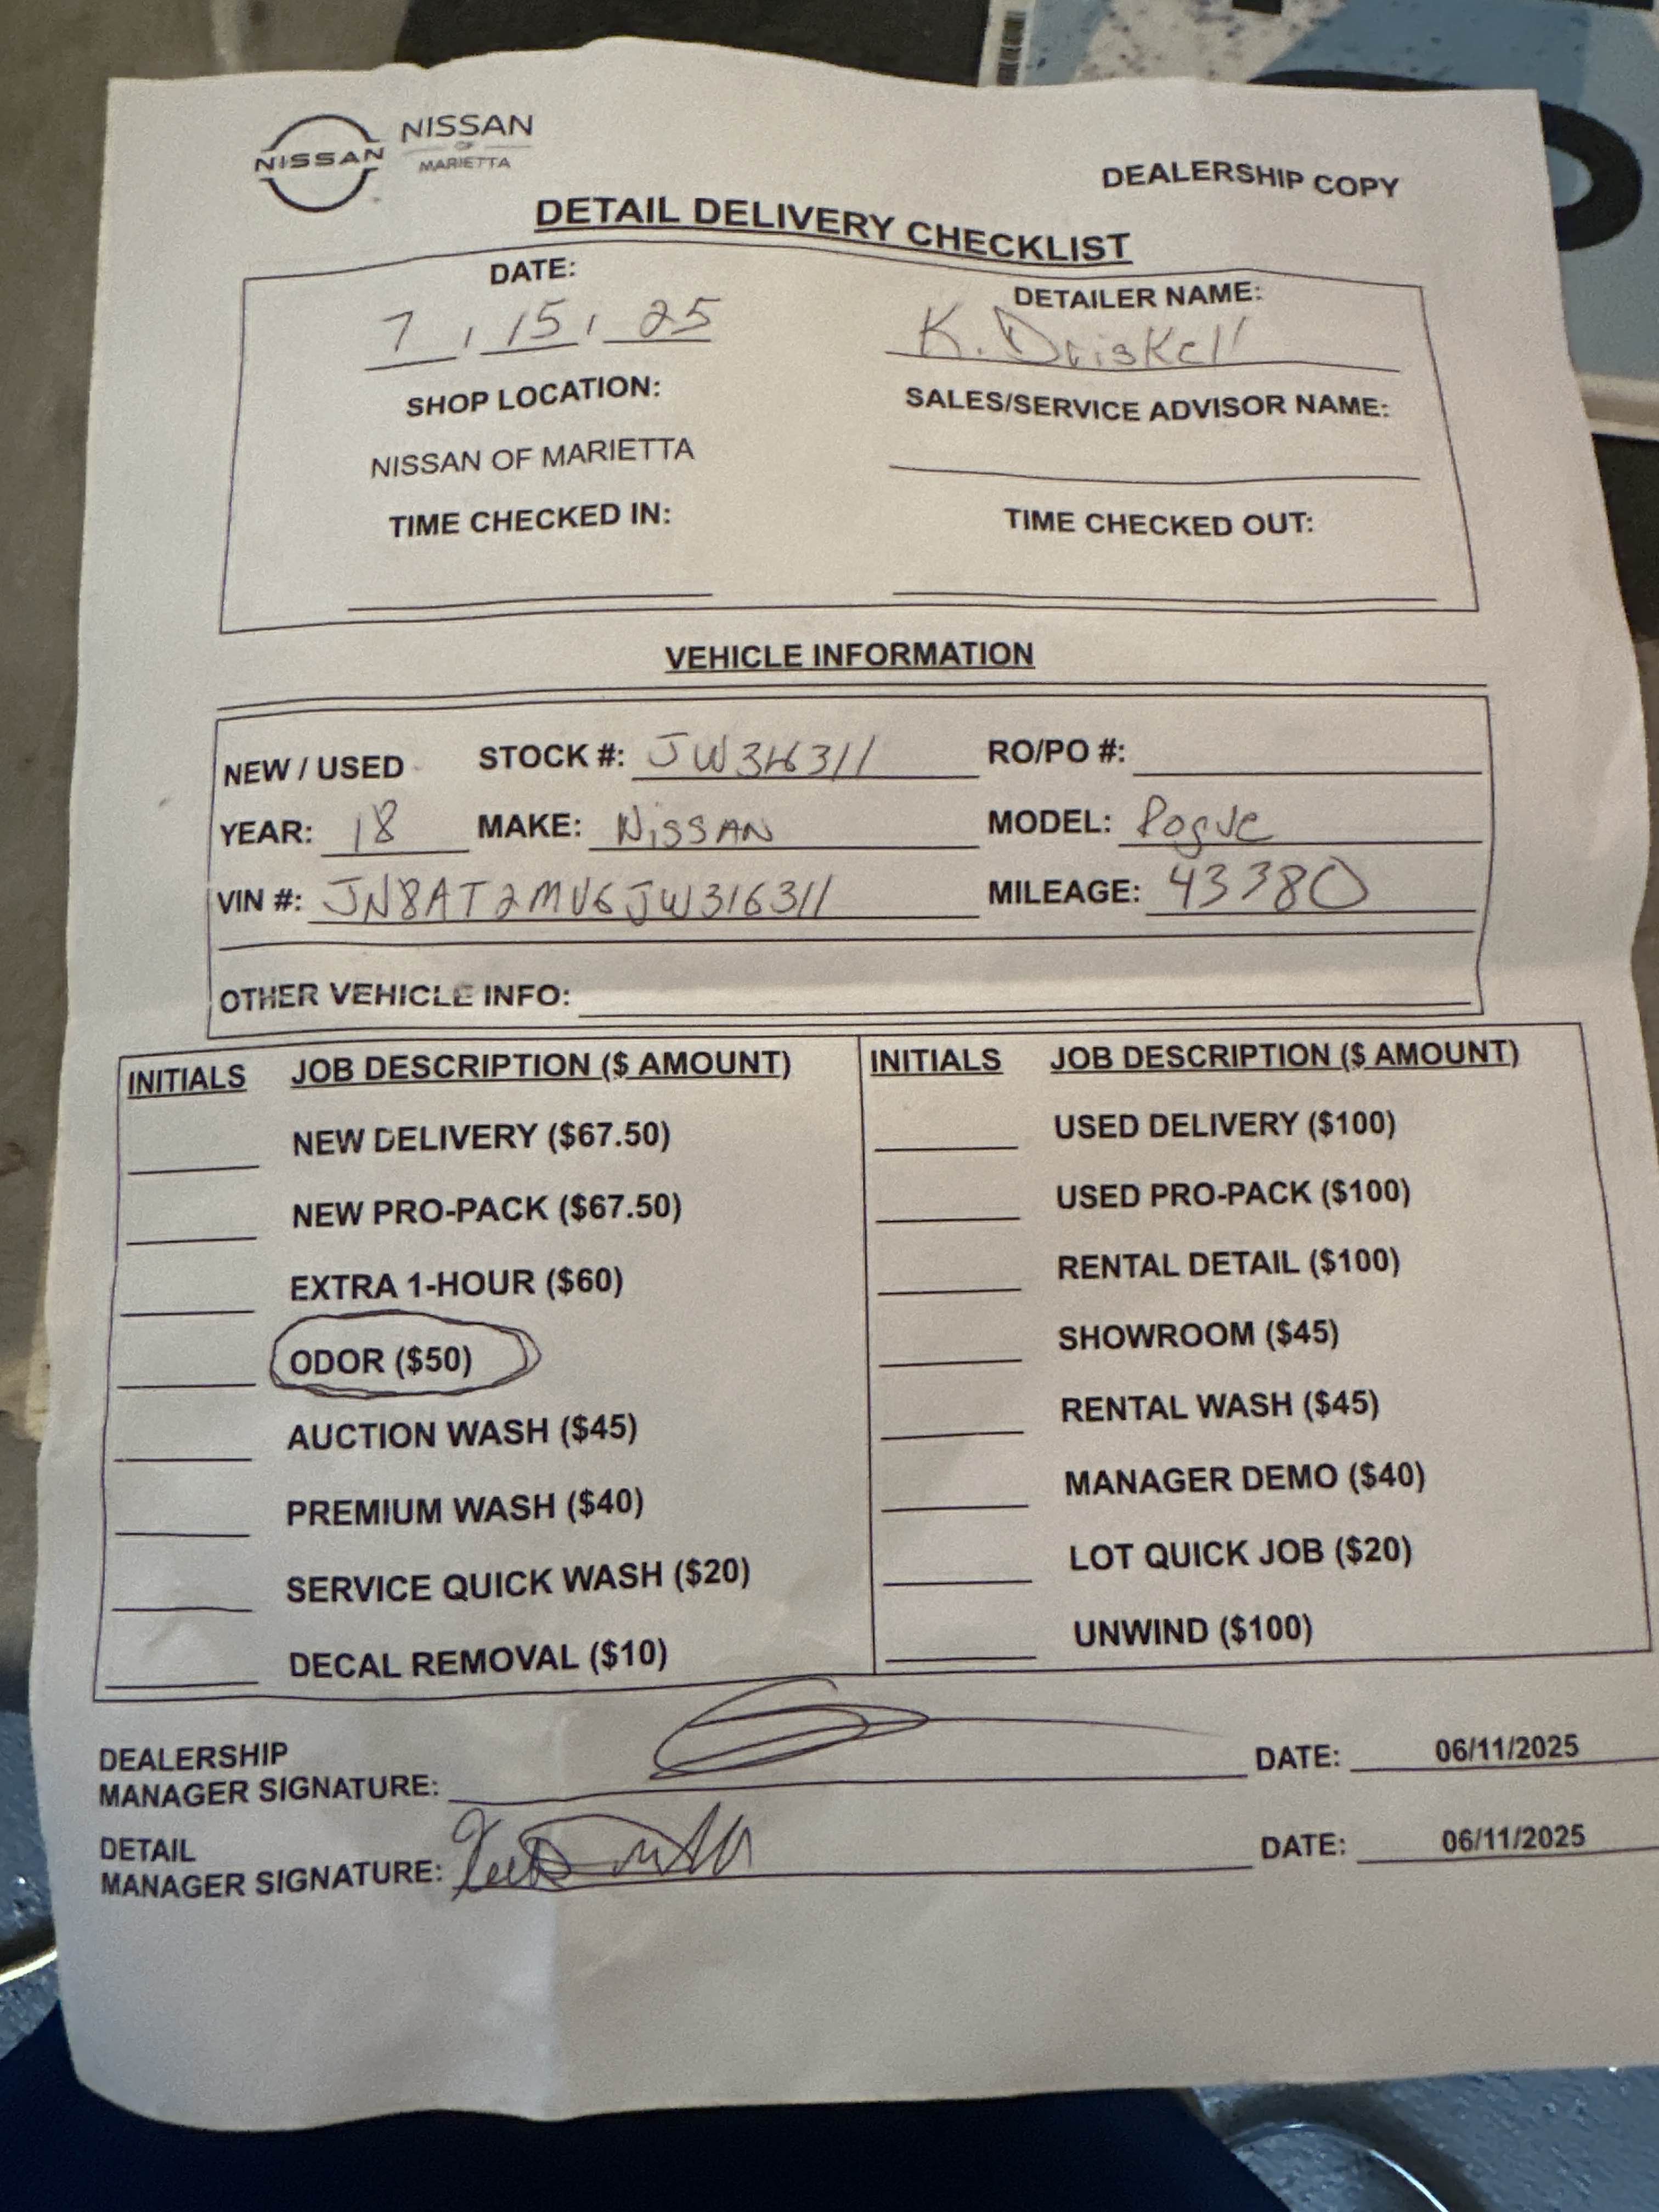 NISSAN
NISSAN
OF
MARIETTA
DEALERSHIP COPY
DETAIL DELIVERY CHECKLIST
DATE:
7, 15, 25
DETAILER NAME:
K. Driskell
SHOP LOCATION:
NISSAN OF MARIETTA
SALES/SERVICE ADVISOR NAME:
TIME CHECKED IN:
TIME CHECKED OUT:
VEHICLE INFORMATION
NEW / USED STOCK #: JW316311 RO/PO #:
YEAR: 18 MAKE: NISSAN MODEL: Rogue
VIN #: JN8AT2MV6JW316311 MILEAGE: 43380
OTHER VEHICLE INFO:
INITIALS JOB DESCRIPTION ($ AMOUNT)
NEW DELIVERY ($67.50)
NEW PRO-PACK ($67.50)
EXTRA 1-HOUR ($60)
ODOR ($50)
AUCTION WASH ($45)
PREMIUM WASH ($40)
SERVICE QUICK WASH ($20)
DECAL REMOVAL ($10)
INITIALS JOB DESCRIPTION ($ AMOUNT)
USED DELIVERY ($100)
USED PRO-PACK ($100)
RENTAL DETAIL ($100)
SHOWROOM ($45)
RENTAL WASH ($45)
MANAGER DEMO ($40)
LOT QUICK JOB ($20)
UNWIND ($100)
DEALERSHIP
MANAGER SIGNATURE: DATE: 06/11/2025
DETAIL
MANAGER SIGNATURE: DATE: 06/11/2025